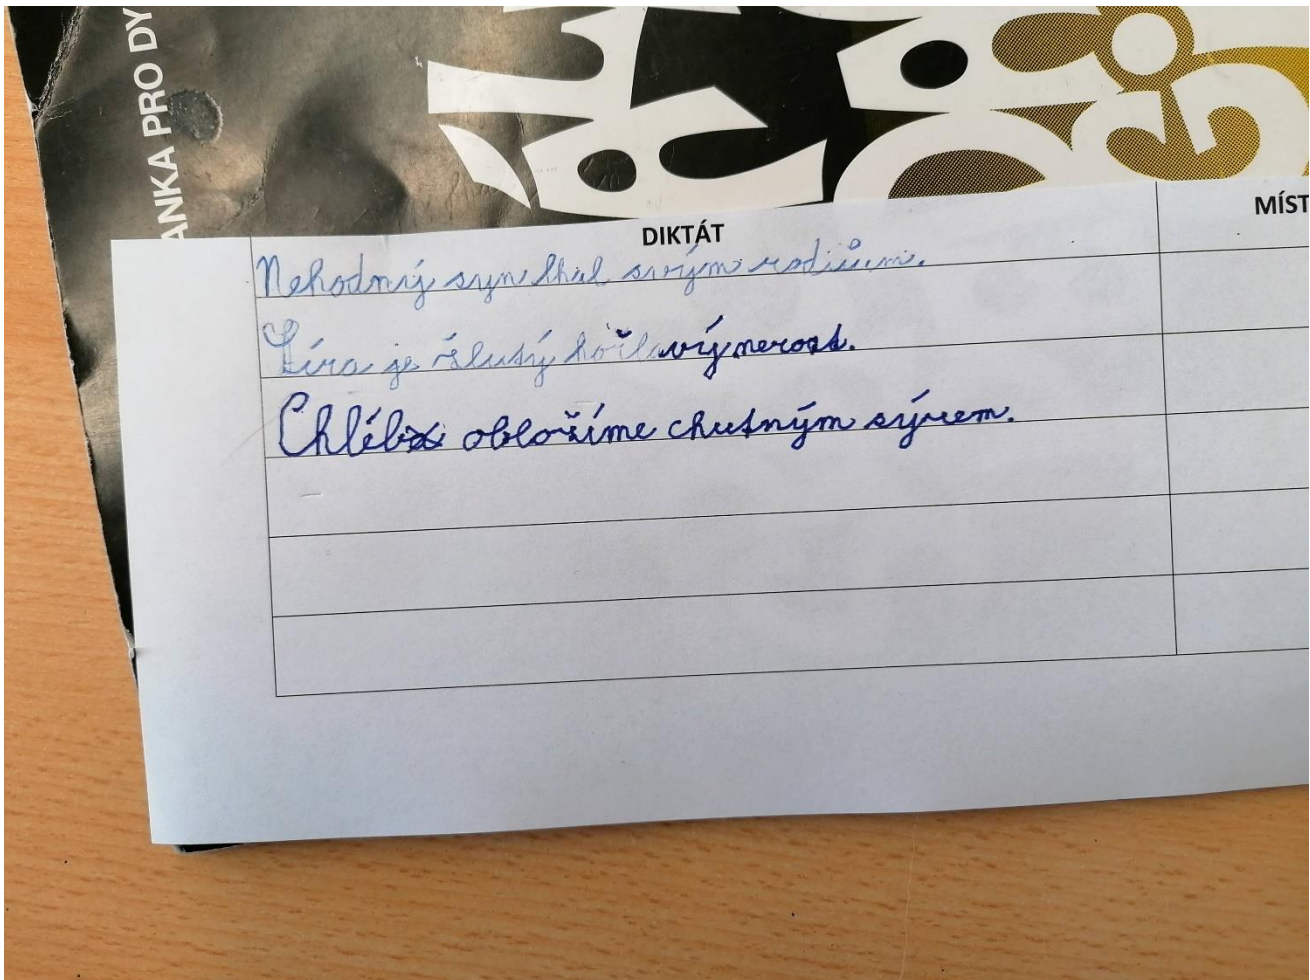 ANKA PRO DY
DIKTÁT
MÍST
Nehodný syn lhal svým rodičům.
Síra je žlutý hořlavý nerost.
Chléb obložíme chutným sýrem.